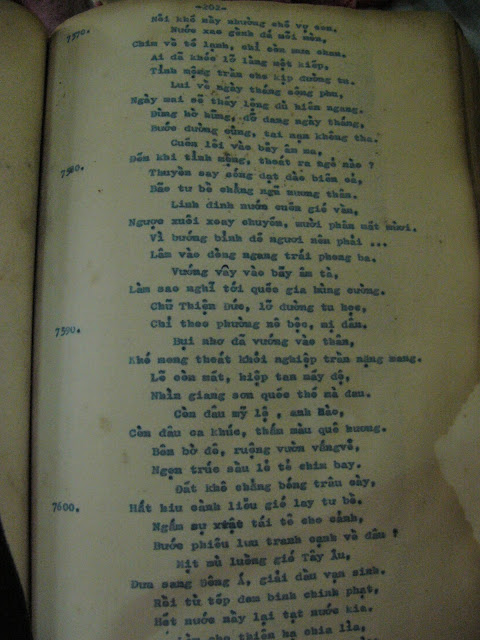 -202-
7570. Nỗi khổ này nhường chỗ vợ con.
Nước xao gành đá mỏi mòn,
Chim về tổ lạnh, chỉ còn mưa chan.
Ai đã khóc lỡ làng một kiếp,
Tỉnh mộng trần cho kịp đường tu.
Lui về ngày tháng công phu,
Ngày mai sẽ thấy lộng dù hiên ngang.
Đừng hờ hững, dở dang ngày tháng,
Bước đường cùng, tai nạn không tha.
Cuốn lôi vào bẫy âm ma,
7580. Đến khi tỉnh mộng, thoát ra ngỏ nào ?
Thuyền say sóng dạt dào biển cả,
Bão tư bề chẳng ngã nương thân.
Linh đinh nước cuốn gió vần,
Ngược xuôi xoay chuyển, mười phần mất mười.
Vì bướng bỉnh đó ngươi nên phải ...
Lâm vào dòng ngang trái phong ba.
Vướng vây vào bẫy âm tà,
Làm sao nghĩ tới quốc gia hùng cường.
Chữ Thiện Đức, lỡ đường tu học,
7590. Chỉ theo phường nô bộc, ai dân.
Bụi nhơ đã vướng vào thân,
Khó mong thoát khỏi nghiệp trần nặng mang.
Lẽ còn mất, kiếp tan nấy độ,
Nhìn giang sơn quốc thổ mà đau.
Còn đâu mỹ lệ , anh Hào,
Còn đâu ca khúc, thắm màu quê hương.
Bốn bờ đê, ruộng vườn vắngvẻ,
Ngọn trúc sầu lẻ tẻ chim bay.
Đất khô chẳng bóng trâu cày,
7600. Hắt hiu cành liễu gió lay tư bề.
Ngắm sự tái tê cho cảnh,
Bước phiêu lưu tranh cạnh về đâu ?
Mịt mù luồng gió Tây Âu,
Đưa sang Đông Á, giải dầu vạn sinh.
Rồi từ tốp đem binh chinh phạt,
Hết nước này lại tạt nước kia.
Làm cho thiên hạ chia lìa,